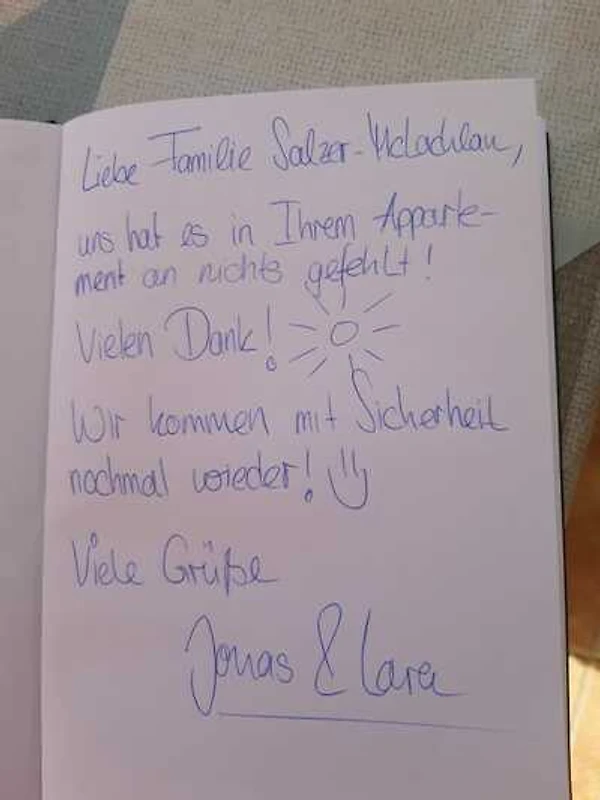 Liebe Familie Salzer-McLachlan,
uns hat es in Ihrem Apparte-
ment an nichts gefehlt!
Vielen Dank!
Wir kommen mit Sicherheit
nochmal wieder!
Viele Grüße
Jonas & Lara